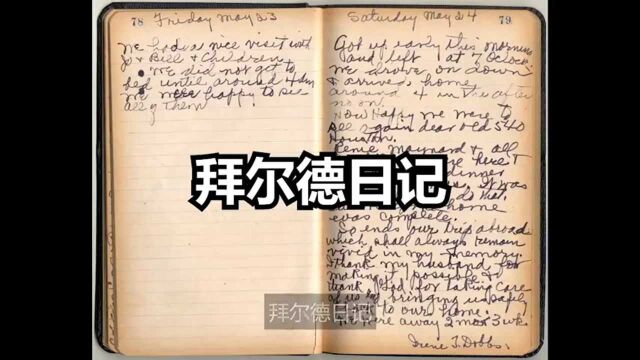 78 Friday May 23
We had a nice visit with
Jo & Bill & Children
We did not get to
bed until around 4 am
We were happy to see
all of them!
Saturday May 24 79
Got up early this morning
and left at 7 O'clock
we drove on down
& arrived home
around 4 in the after
noon.
Now Happy we were to
see again dear old 540
Houston.
Maynard & all
were here
dinner
It was
do that
home
was complete.
So ends our trip abroad
which shall always remain
vivid in my memory.
I thank my husband for
making it possible &
thank God for taking care
of us & bringing us safely
to our home.
We were away 2 mos 3 wks.
Irene T. Dobbs.
拜尔德日记
拜尔德日记